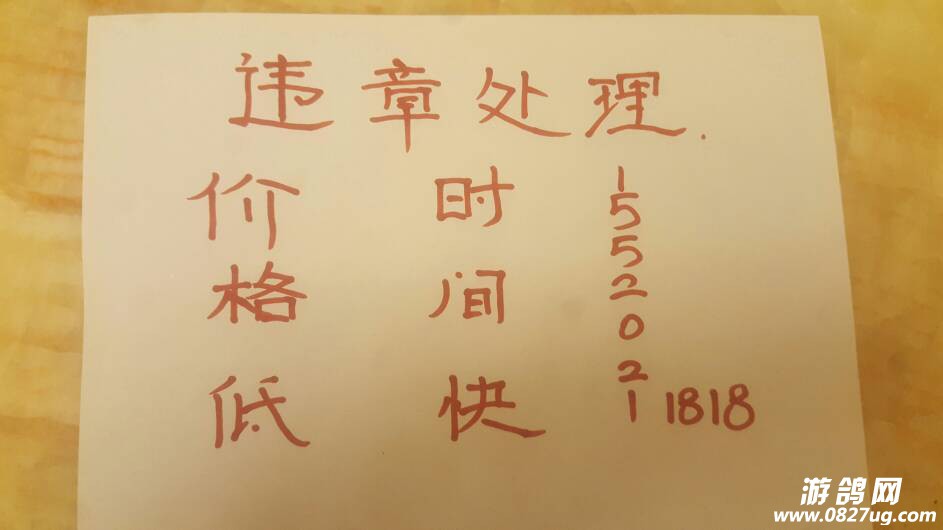 违章处理.
价格低
时间快
15520211818
游鸽网
www.0827ug.com